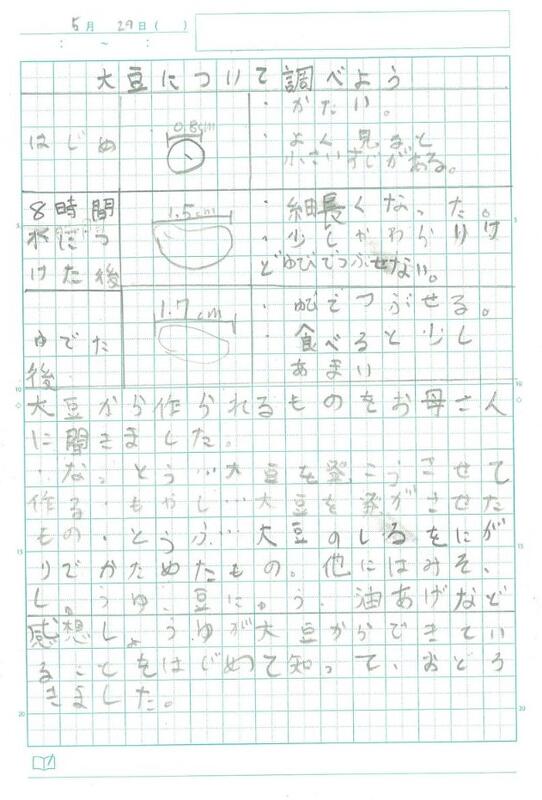 5月29日( )
: ~ :
大豆について調べよう
はじめ
0.8cm
・かたい。
・よく見ると
小さいすじがある。
8時間
水につ
けた後
1.5cm
・細長くなった。
・少しやわらかいけ
どゆびでつぶせない。
ゆでた
後
1.7cm
・ゆびでつぶせる。
・食べると少し
あまい
大豆から作られるものをお母さん
に聞きました。
・なっとう…大豆を発こうさせて
作る・もやし…大豆を発がさせた
もの・とうふ…大豆のしるをにが
りでかためたもの。他にはみそ、
しょうゆ、豆にゅう、油あげなど
感想しょうゆが大豆からできてい
ることをはじめて知って、おどろ
きました。